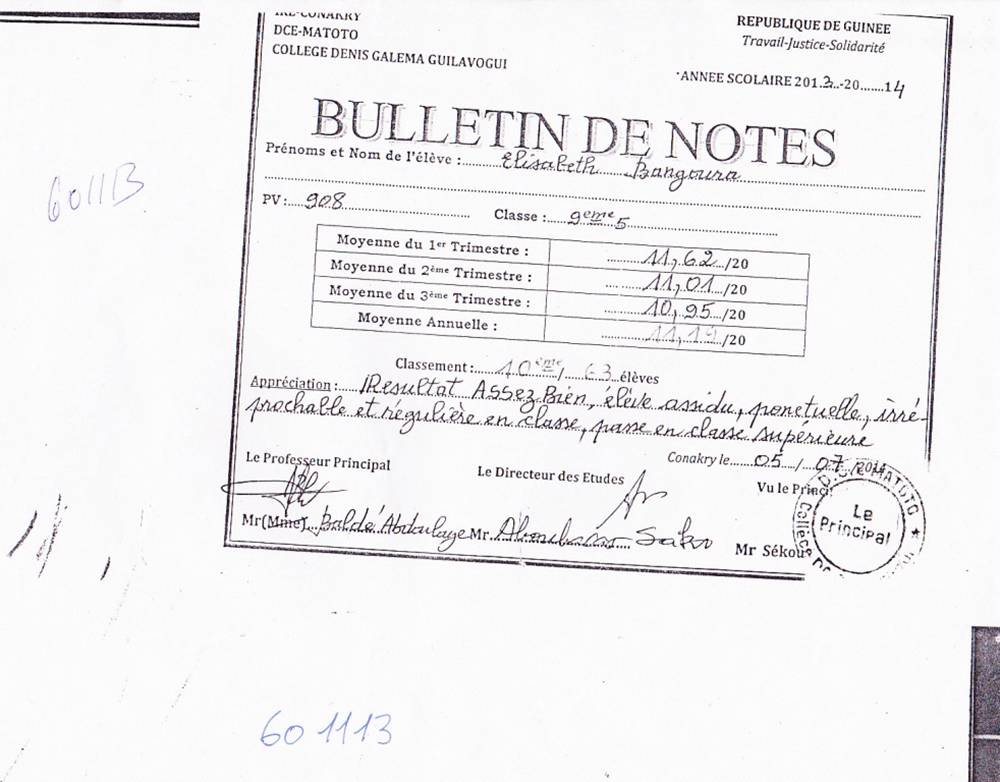 IRE-CONAKRY
DCE-MATOTO
COLLEGE DENIS GALEMA GUILAVOGUI
REPUBLIQUE DE GUINEE
Travail-Justice-Solidarité
ANNEE SCOLAIRE 2013-20.......14
BULLETIN DE NOTES
Prénoms et Nom de l'élève : Elisabeth Bangoura
PV: 908 Classe : 9eme 5
Moyenne du 1er Trimestre : 11,62 /20
Moyenne du 2ème Trimestre : 11,01 /20
Moyenne du 3ème Trimestre : 10,95 /20
Moyenne Annuelle : 11,19 /20
Classement : 10eme / 63 élèves
Appréciation : Resultat Assez Bien, élève assidu, ponctuelle, irré-
prochable et régulière en classe, passe en classe supérieure
Conakry le 05 / 07 /2014
Le Professeur Principal
Le Directeur des Etudes
Vu le Princi
Mr(Mme) Baldé Abdoulaye Mr. Sako
Mr Sékou
D.C.E MATOTO
Collège
Le
Principal
6011B
601113